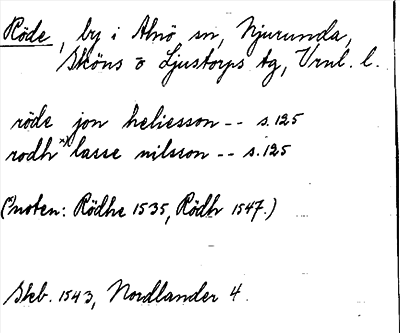 Röde, by i Alnö sn, Njurunda,
Sköns o Ljustorps tg, Vrnl. l.
röde jon heliesson -- s.125
rodh x) lasse nilsson -- s.125
(x) noten: Rödhe 1535, Rödh 1547.)
Skb. 1543, Nordlander 4.